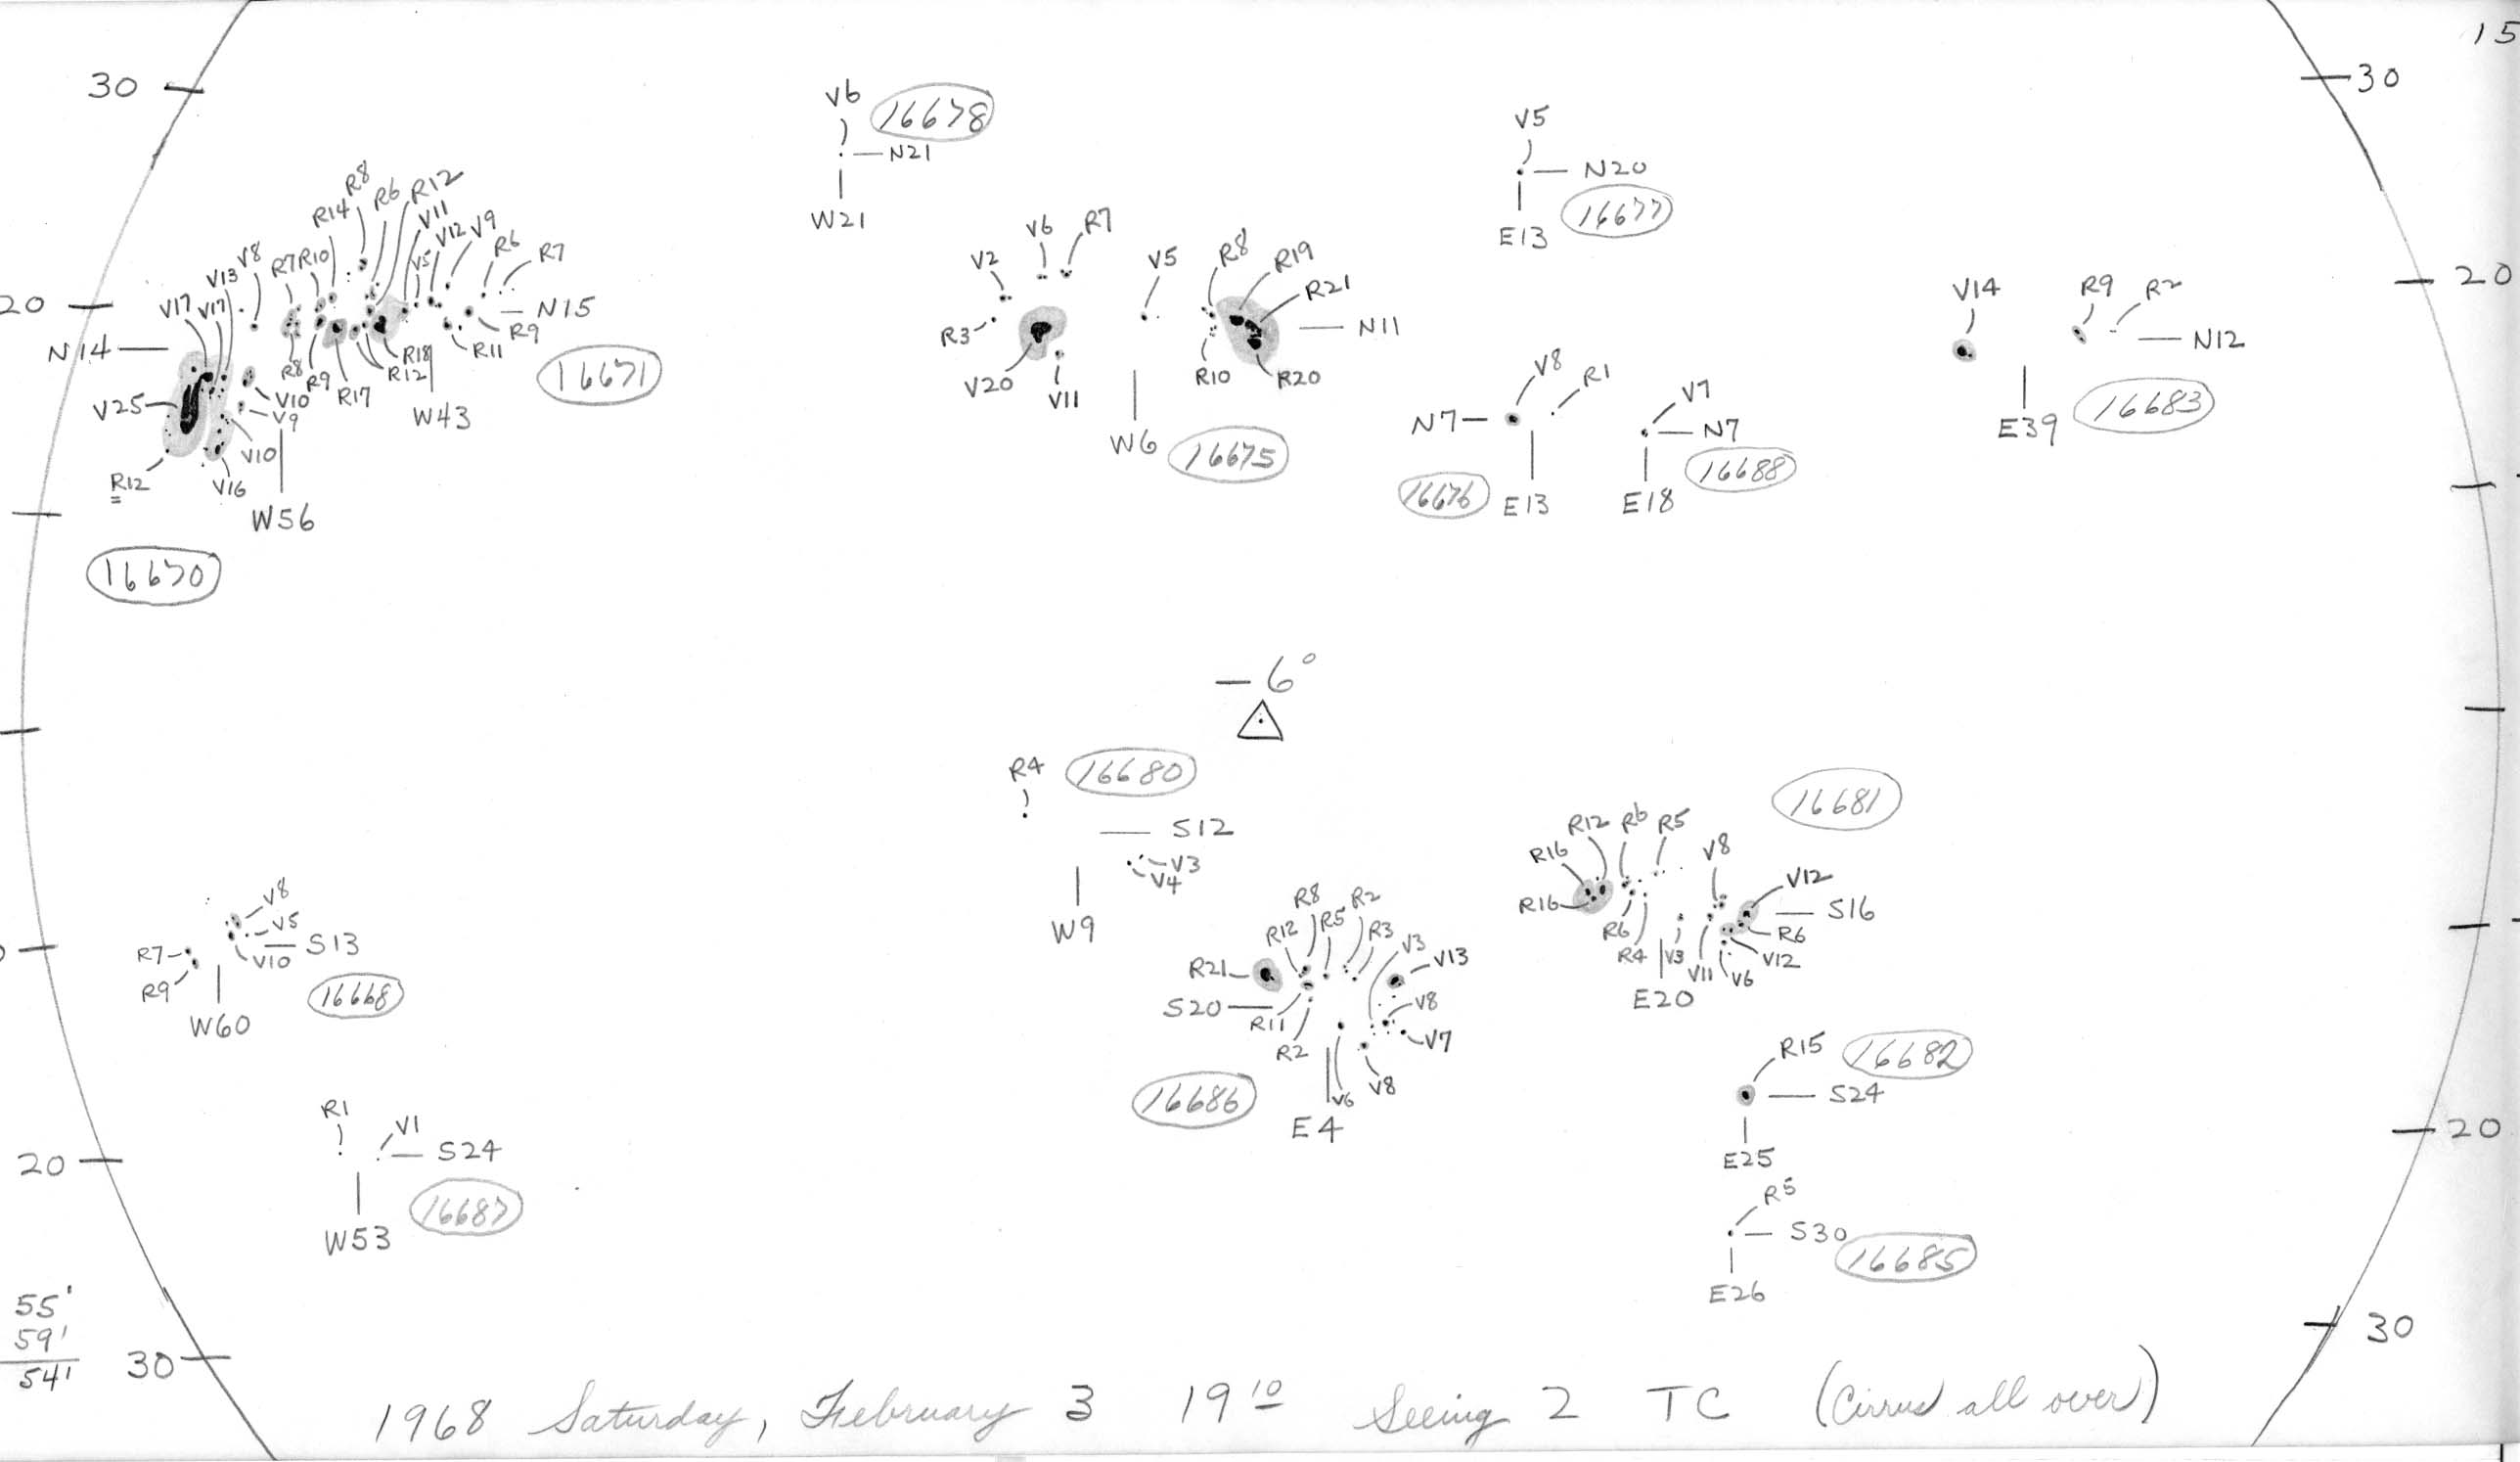 15
30
30
V6
16678
N21
W21
V5
N20
16677
E13
R8
R6
R12
R14
V11
V12
V9
R6
R7
V8
R7
R10
V5
V13
V17
V17
20
N15
R9
R11
N14
R18
R12
R8
R9
R17
16671
V25
V10
V9
W43
V10
R12
V16
W56
16670
V6
R7
V2
V5
R8
R19
R21
R3
N11
V20
V11
R10
R20
W6
16675
20
V14
R9
R2
N12
E39
16683
V8
R1
N7
16676
E13
V7
N7
16688
E18
– 6°
R4
16680
S12
V3
V4
W9
16681
R12
R6
R5
R16
V8
V12
R16
S16
R6
R6
R4
V3
V11
V6
V12
E20
V8
V5
R7
S13
V10
R9
16668
W60
R8
R2
R12
R5
R3
V3
V13
R21
V8
S20
R11
V7
R2
V6
V8
16686
E4
R15
16682
S24
E25
20
R1
V1
S24
20
16687
W53
R5
S30
16685
E26
55'
59'
54'
30
30
1968 Saturday, February 3 19 10 Seeing 2 TC (Cirrus all over)